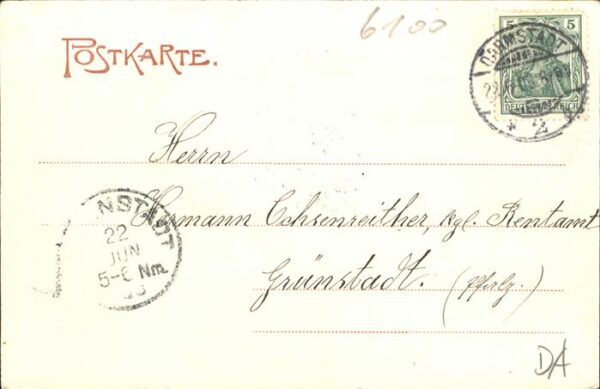 6100
POSTKARTE.
5 5
DARMSTADT
DEUTSCHES REICH
* 2
Herrn
Hermann Ochsenreither, kgl. Rentamt
Grünstadt. (Pfalz.)
NSTADT
22
JUN
5-6 Nm.
DA